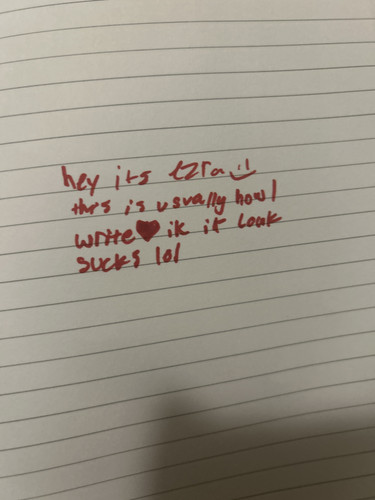 hey its ezra :)
this is usually how I
write ❤ ik it look
sucks lol